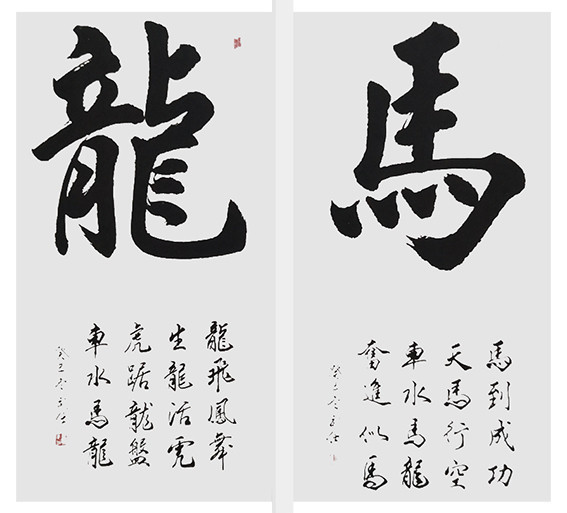 龍
龍飛鳳舞
生龍活虎
虎踞龍盤
車水馬龍
癸巳
馬
馬到成功
天馬行空
車水馬龍
奮進似馬
癸巳